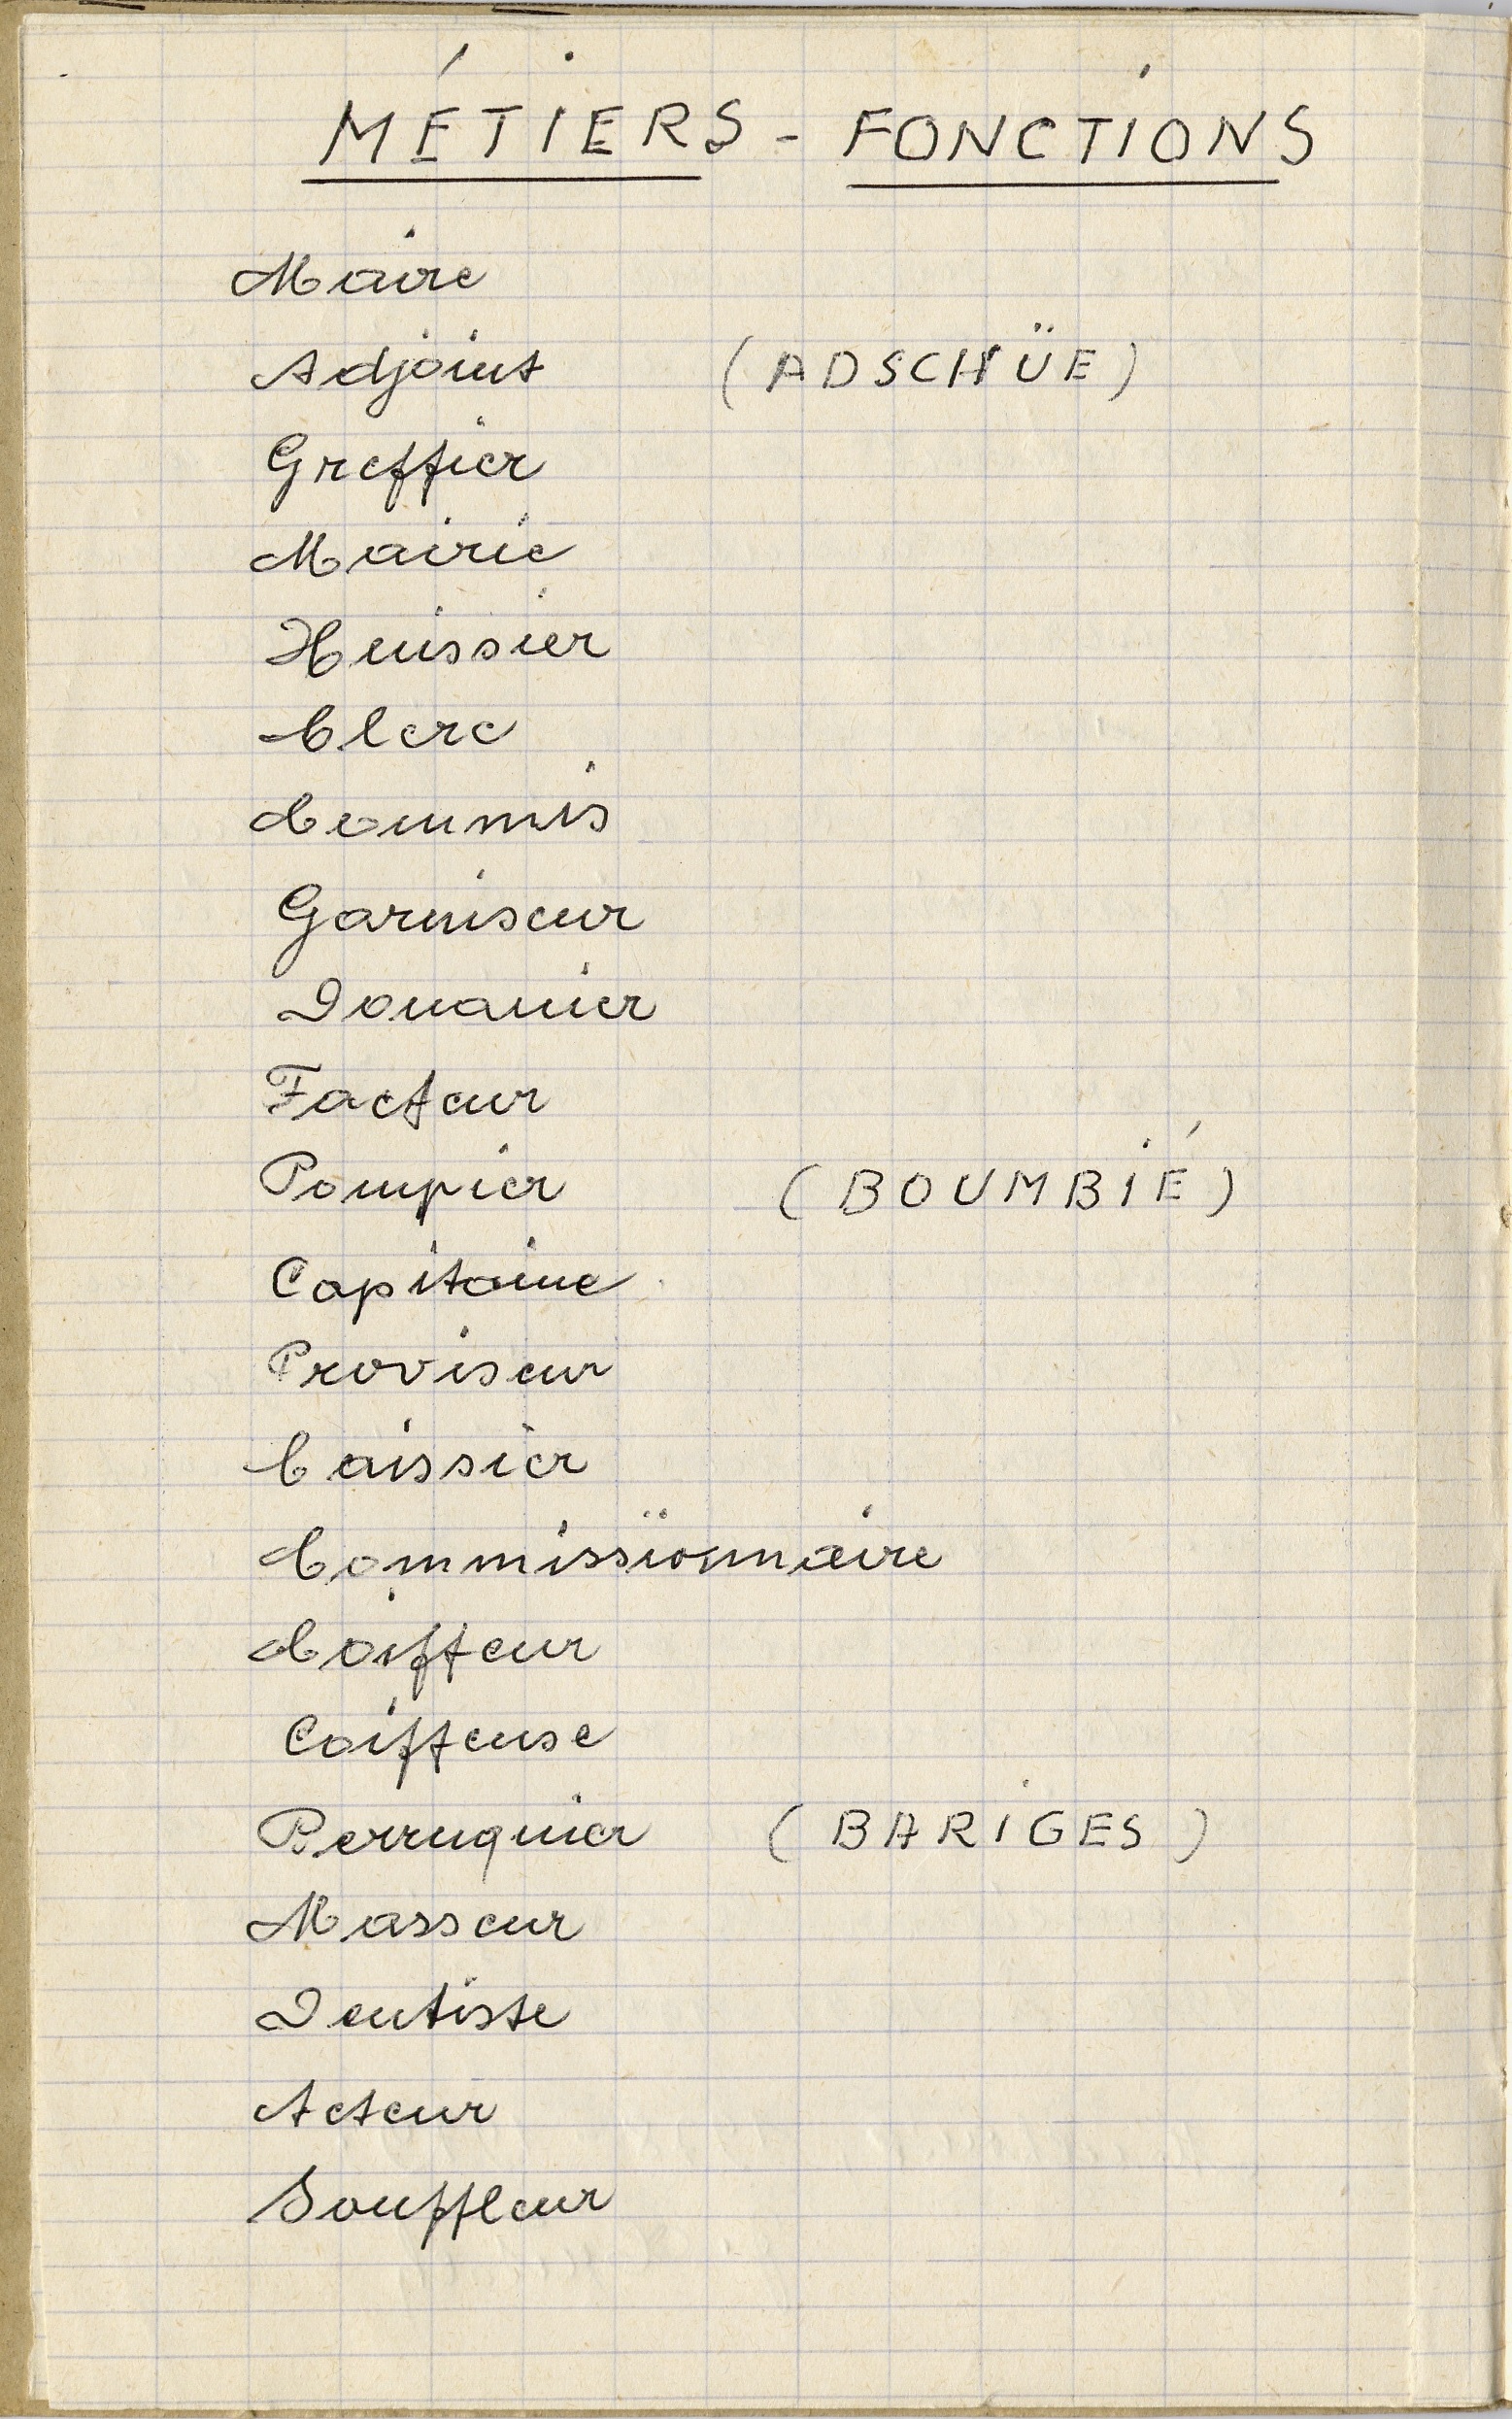 MÉTIERS - FONCTIONS
Maire
Adjoint (ADSCHÜE)
Greffier
Mairie
Huissier
Clerc
Commis
Garniseur
Douanier
Facteur
Pompier (BOUMBIÉ)
Capitaine
Proviseur
Caissier
Commissïonnaire
Coiffeur
Coiffeuse
Perruquier (BARIGES)
Masseur
Dentiste
Acteur
Souffleur